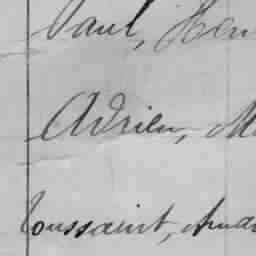 Paul, Hen
Adrien, M
Toussaint, Aman